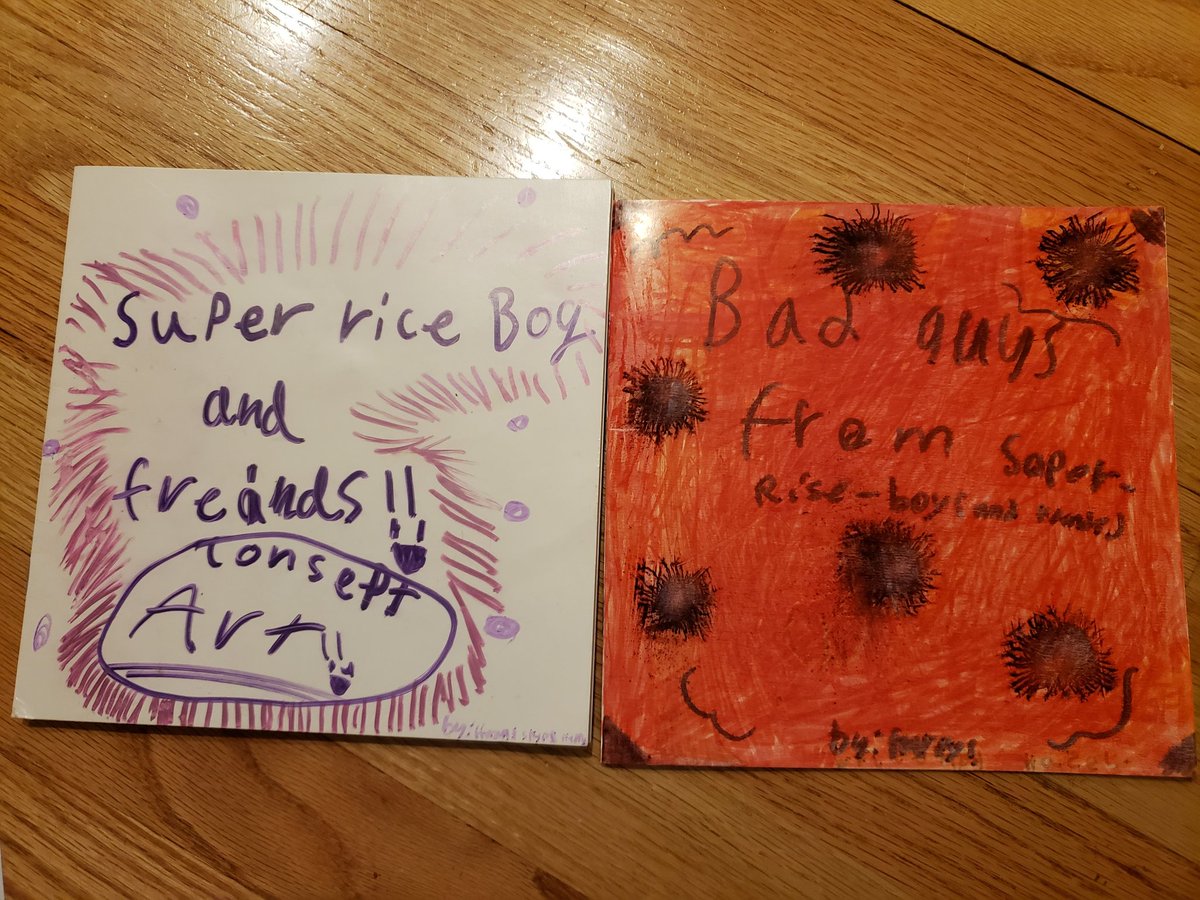 Super rice Boy
and
freands!!
Consept
Art!!
by:
Bad guys
from Soper-
Rise-boy (and
by: